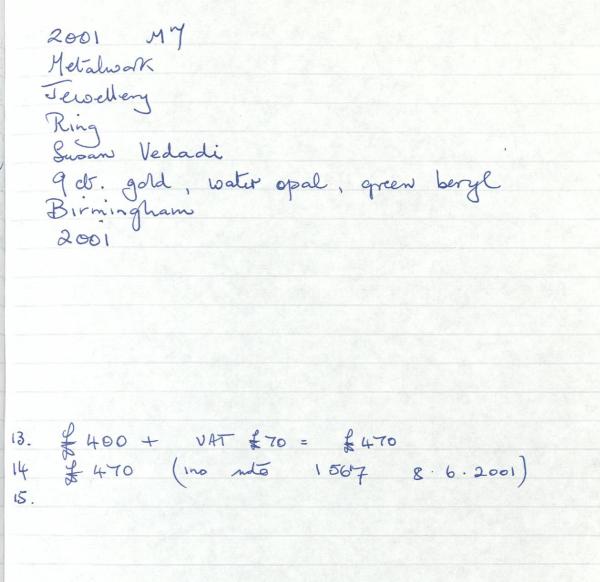 2001 M7
Metalwork
Jewellery
Ring
Susan Vedadi
9 ct. gold, water opal, green beryl
Birmingham
2001
13. £400 + VAT £70 = £470
14 £470 ( 1567 8.6.2001)
15.